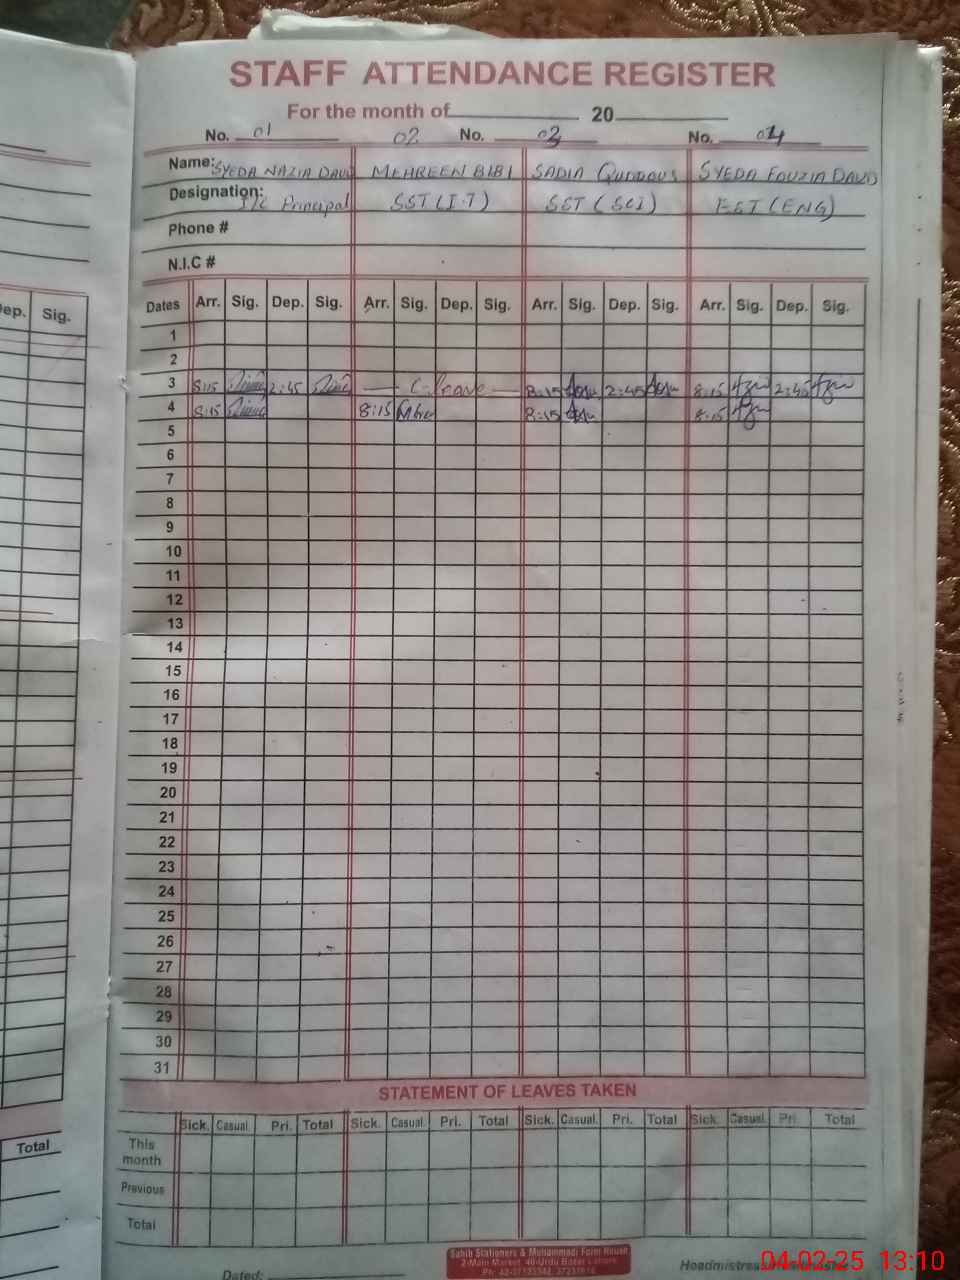 STAFF ATTENDANCE REGISTER
For the month of 20
No. 01 02 No. 03 No. 04
Name: SYEDA NAZIA DAUD MEHREEN BIBI SADIA QUDDOUS SYEDA FOUZIA DAUD
Designation: I/C Principal SST (I.T) SST (SCI) EST (ENG)
Phone #
N.I.C #
Dep. Sig.
Dates Arr. Sig. Dep. Sig. Arr. Sig. Dep. Sig. Arr. Sig. Dep. Sig. Arr. Sig. Dep. Sig.
1
2
3 8:15 2:45 C-leave 8:15 2:45 8:15 2:45
4 8:15 8:15 8:15 8:15
5
6
7
8
9
10
11
12
13
14
15
16
17
18
19
20
21
22
23
24
25
26
27
28
29
30
31
STATEMENT OF LEAVES TAKEN
Sick. Casual. Pri. Total Sick. Casual. Pri. Total Sick. Casual. Pri. Total Sick. Casual. Pri. Total
Total
This month
Previous
Total
Sahib Stationers & Muhammadi Form House
2-Main Market, 40-Urdu Bazar Lahore.
Dated:
04-02-25 13:10